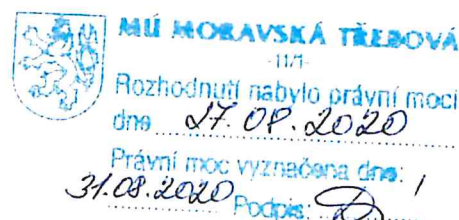 MÚ MORAVSKÁ TŘEBOVÁ
-11/1-
Rozhodnutí nabylo právní moci
dne 27.08.2020
Právní moc vyznačena dne:
31.08.2020 Podpis: